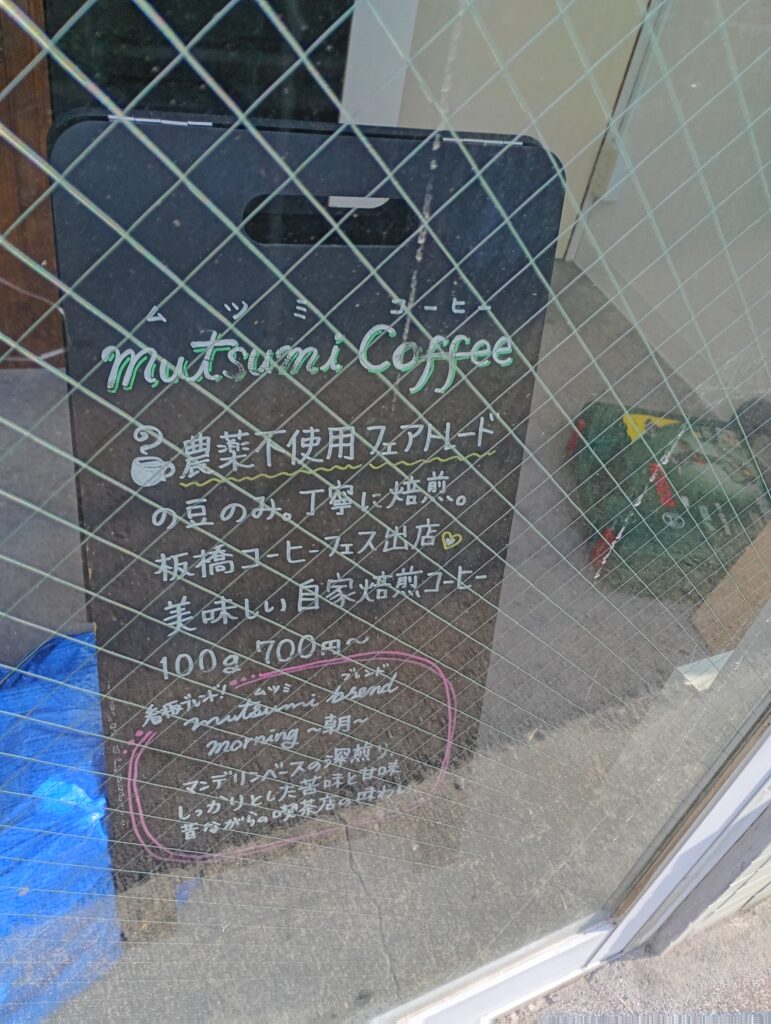 ムツミ コーヒー
mutsumi Coffee
農薬不使用フェアトレード
の豆のみ。丁寧に焙煎。
板橋コーヒーフェス出店
美味しい自家焙煎コーヒー
100g 700円～
看板ブレンド!
ムツミ ブレンド
mutsumi blend
morning ～朝～
マンデリンベースの深煎り
しっかりとした苦味と甘味
昔ながらの喫茶店の味わい